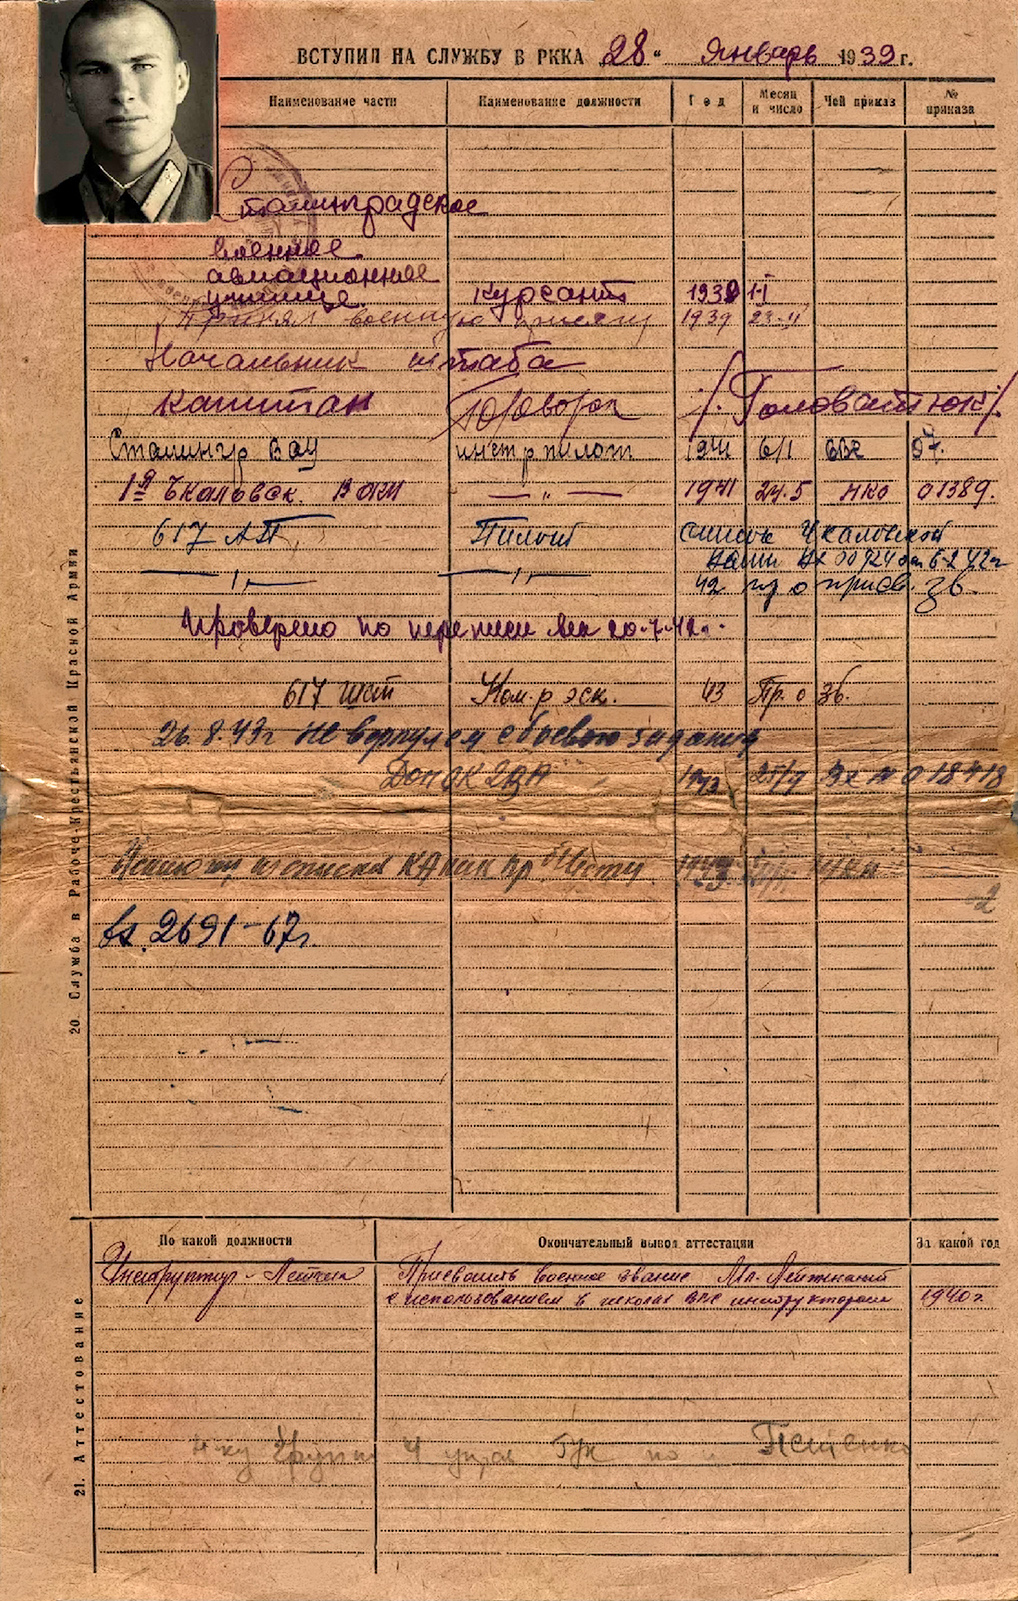 ВСТУПИЛ НА СЛУЖБУ В РККА „28“ январь 1939 г.
Наименование части Наименование должности Год Месяц и число Чей приказ № приказа
Сталинградское
Военное
авиационное
училище. курсант 1939 1-I
Принял военную присягу 1939 23-II
Начальник штаба
капитан /Головатюк/
Сталингр ВАУ инстр пилот 1941 6/I 07.
1я Чкаловск. — " — 1941 24.5 НКО 01389.
617 АП Пилот список Чкаловской
№ 00724 от 6-2 42г
— " — — " — 42 пр о присв. зв.
Проверено по переписи 20.7.42г.
617 шап Ком-р эск. 43 Пр. о зв.
26.8.43г не вернулся с боевого задания
Доп ОК 2ВА
вх. 2691-67г.
20. Служба в Рабоче-Крестьянской Красной Армии
По какой должности Окончательный вывод аттестации За какой год
Инструктор-Летчик Присвоить военное звание Мл. Лейтенант
с использованием в школах ВВС инструктором 1940г.
21. Аттестование